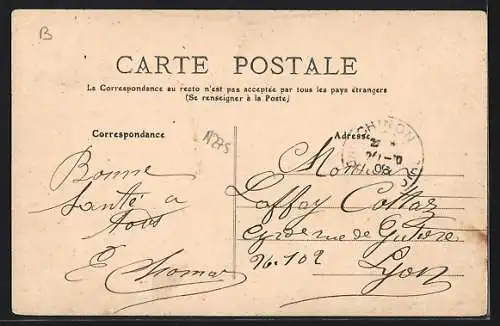 B
CARTE POSTALE
La Correspondance au recto n'est pas acceptée par tous les pays étrangers
(Se renseigner à la Poste)
Correspondance
Adresse
CHINON
08
Bonne
Santé a
Tous
E Thomas
Monsieur
Laffay
rue de
Lyon